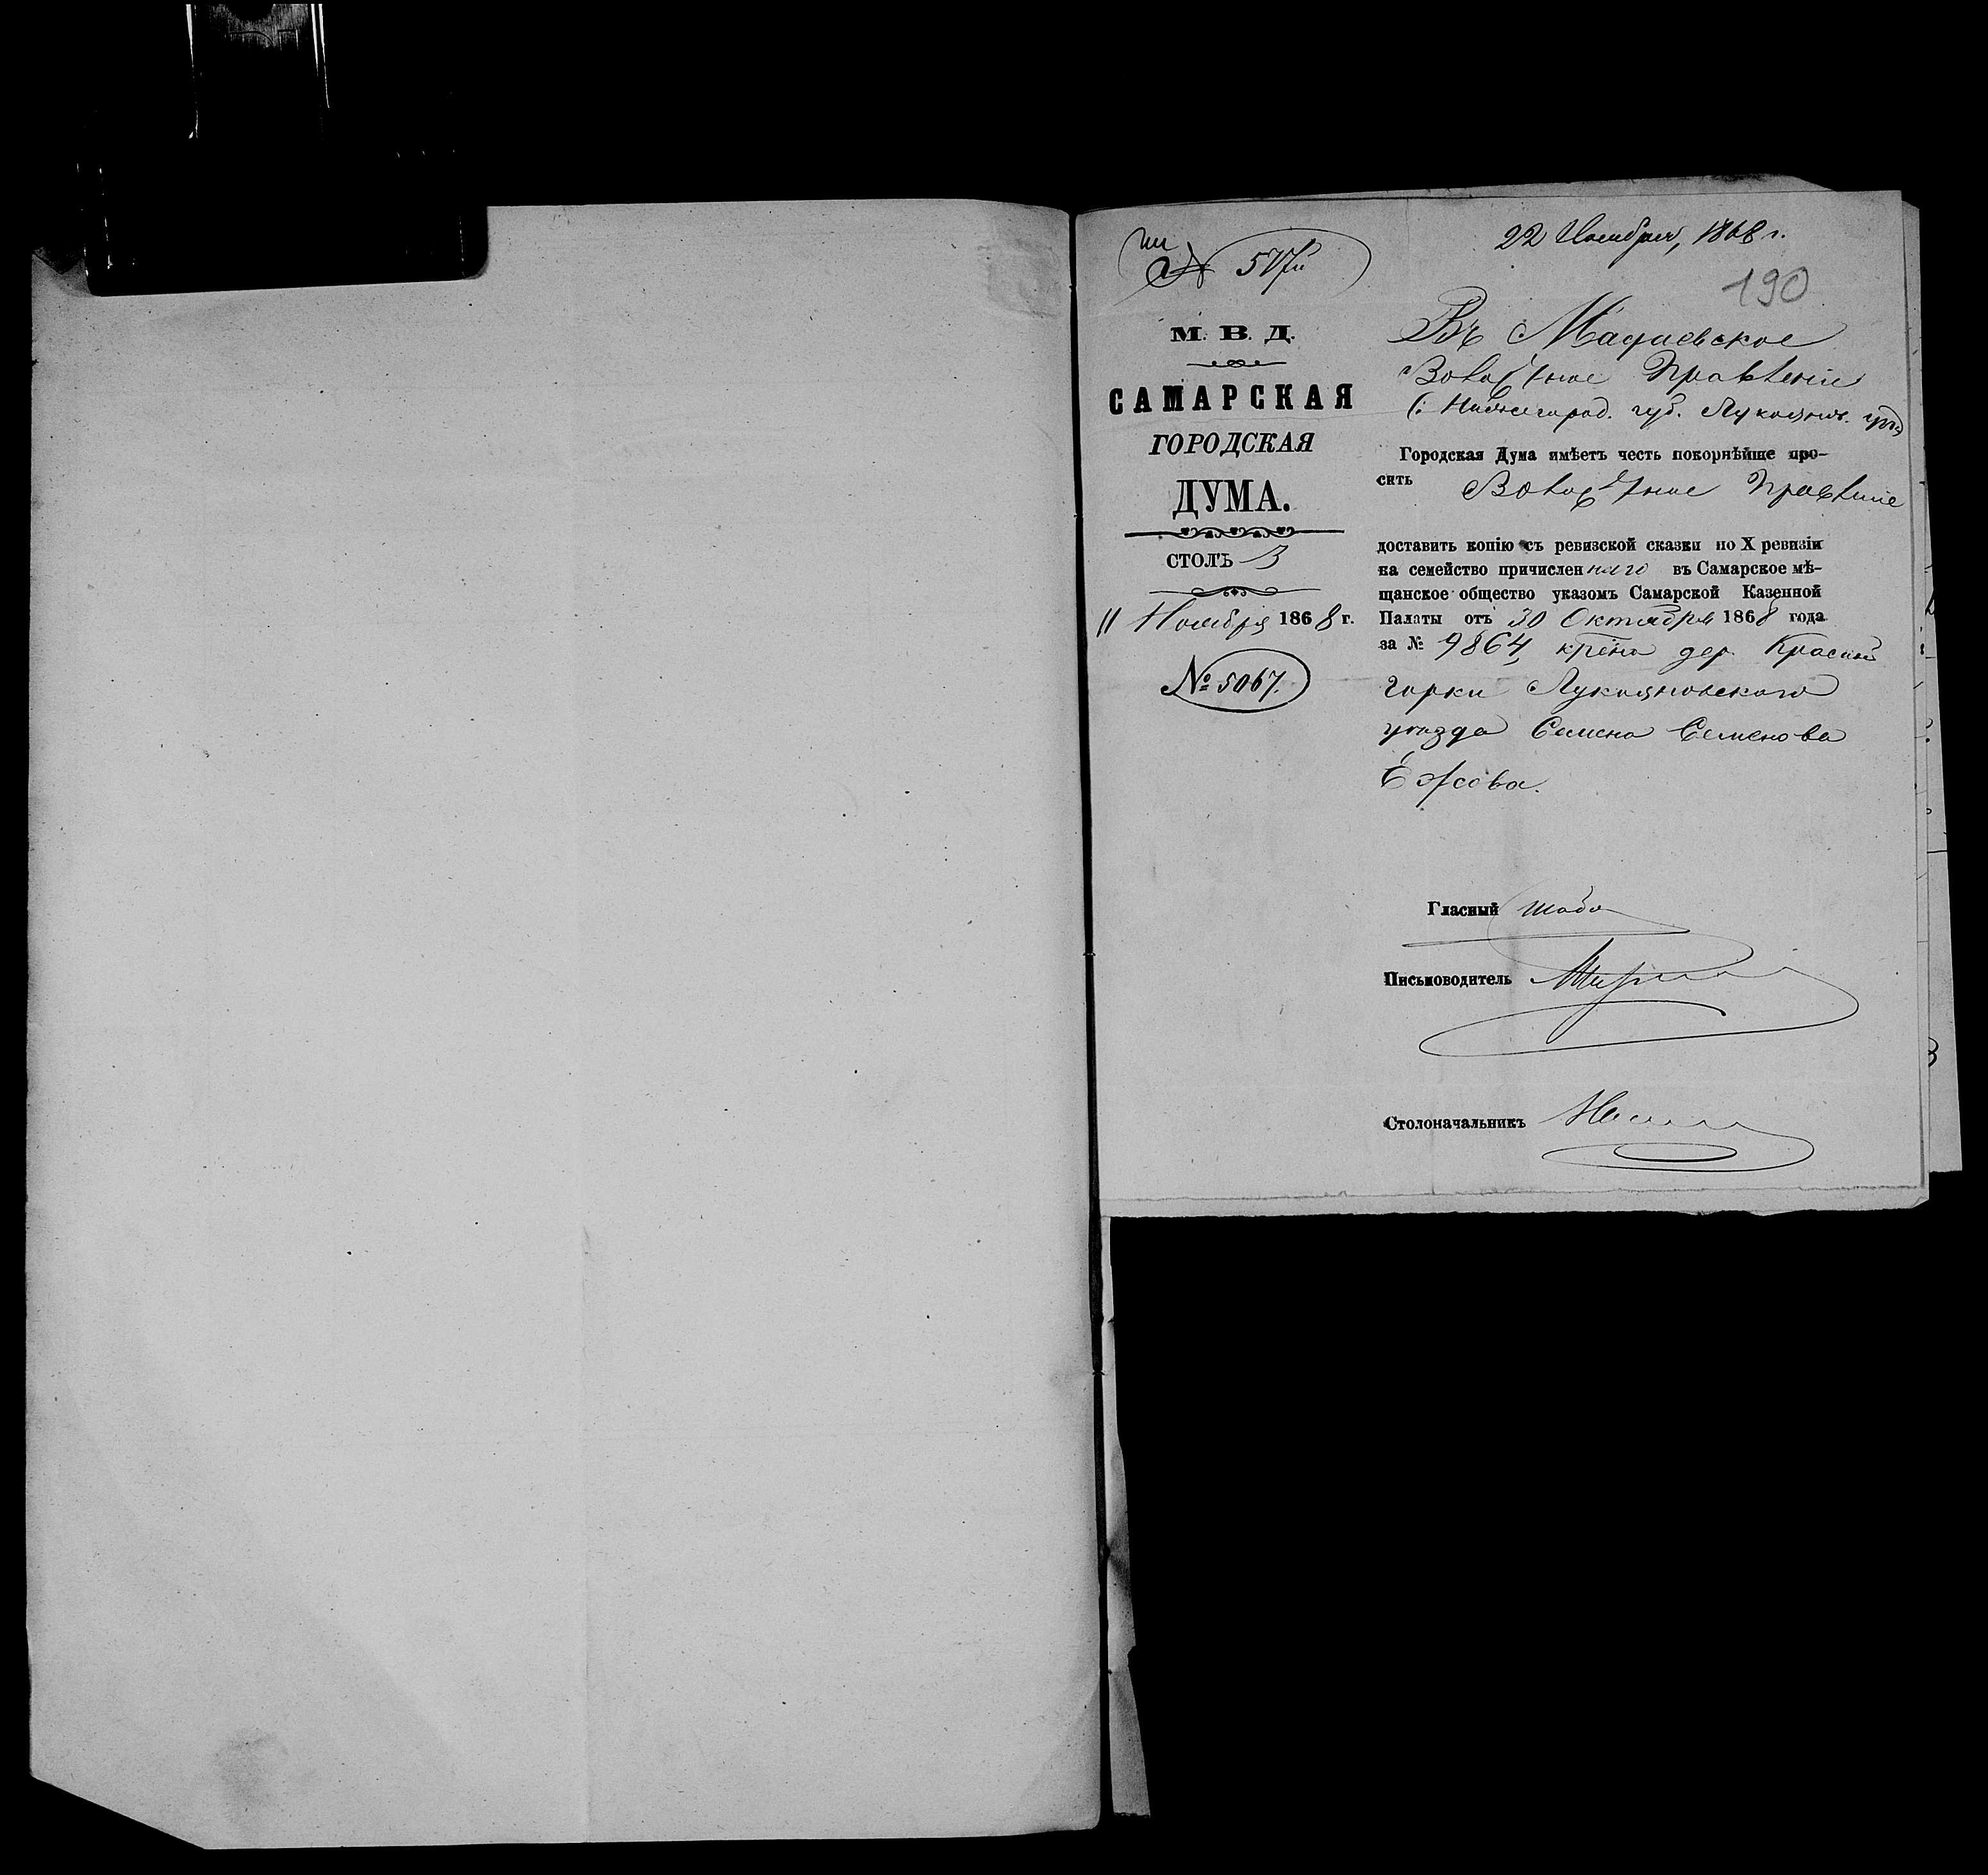 22 Ноября, 1868 г.
190
М. В. Д.
САМАРСКАЯ
ГОРОДСКАЯ
ДУМА.
СТОЛЪ 3
11 Ноября 1868 г.
№ 5067.
Въ Мадаевское
Волостное Правленіе
(: Нижегород. губ. Лукоянов. уѣзд
Городская Дума имѣетъ честь покорнѣйще про-
сить Волостное Правленіе
доставить копію съ ревизской сказки по X ревизіи
на семейство причисленнаго въ Самарское мѣ-
щанское общество указомъ Самарской Казенной
Палаты отъ 30 Октября 1868 года
за № 9864, кр-на дер. Красной
Горки Лукояновскаго
уѣзда Семена Семенова
Ежова.
Гласный
Письмоводитель
Столоначальникъ